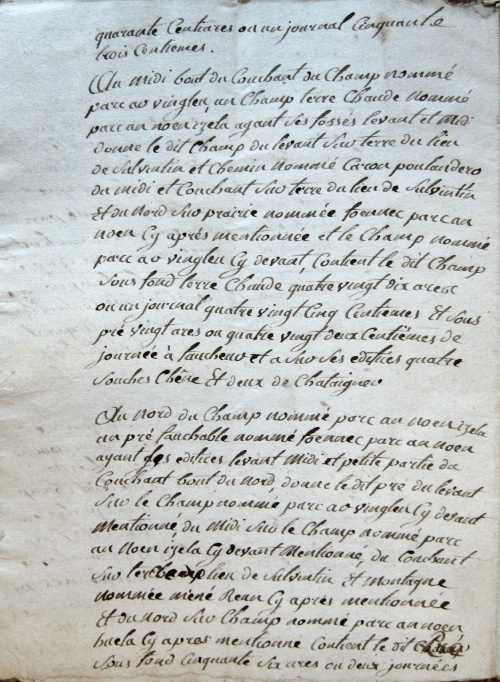 quarante Centiares ou un journal Cinquante
trois Centiemes.
Au Midi bout du Couchant du Champ nommé
parc ao vinglen, un Champ terre Chaude nommé
parc an noen izela ayant ses fossés levant et Midi
donne le dit Champ du levant sur terre du lieu
de Sulvintin et Chemin nommé Caron poulandero
du midi et Couchant sur terre du lieu de Sulvintin
Et du Nord sur prairie nommée foennec parc an
noen Cy aprés mentionnée et le Champ nommé
parc ao vinglen Cy devant, Contient le dit Champ
sous fond terre Chaude quatre vingt dix ares
ou un journal quatre vingt Cinq Centiemes Et sous
pré vingt ares ou quatre vingt deux Centiemes de
journée à faucheur et a sur ses edifices quatre
souches Chêne Et deux de Chataigner
Au Nord du Champ nommé parc an noen izela
un pré fauchable nommé foennec parc an noen
ayant ses edifices levant Midi et petite partie du
Couchant bout du Nord, donne le dit pré du levant
sur le Champ nommé parc ao vinglen Cy devant
Mentionné du Midi sur le Champ nommé parc
an Noen izela Cy devant Mentionné, du Couchant
sur lieu de Sulvintin Et Montagne
nommée mené Cy aprés mentionnée
Et du Nord sur Champ nommé parc an noen
huela Cy apres mentionné Contient le dit pré
sous fond Cinquante six ares ou deux journées